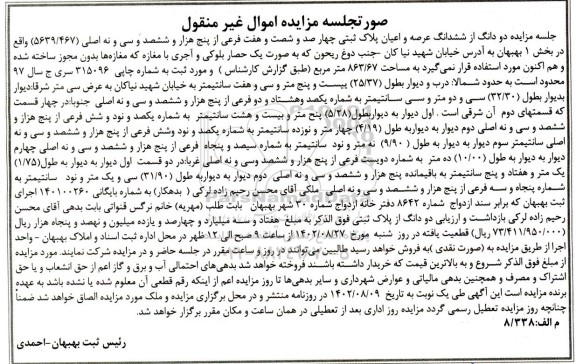 صورتجلسه مزایده اموال غیر منقول
جلسه مزایده دو دانگ از ششدانگ عرصه و اعیان پلاک ثبتی چهار صد و شصت و هفت فرعی از پنج هزار و ششصد و سی و نه اصلی (۵۶۳۹/۴۶۷) واقع
در بخش ۱ بهبهان به آدرس خیابان شهید نیا کان -جنب دوغ ریحون که به صورت یک حصار بلوکی و آجری با مغازه که مغازه‌ها بدون مجوز ساخته شده
و هم اکنون مورد استفاده قرار نمی‌گیرد به مساحت ۸۶۳/۶۷ متر مربع (طبق گزارش کارشناس ) و مورد ثبت به شماره چاپی ۳۱۵۰۹۶ سری ج سال ۹۷
محدود است به حدود شمالا: درب و دیوار بطول (۲۵/۳۷) بیست و پنج متر و سی و هفت سانتیمتر به خیابان شهید نیاکان به عرض سی متر شرقا:دیوار
بدیوار بطول (۳۲/۳۰) سی و دو متر و سی سانتیمتر به شماره یکصد وهشتاد و دو فرعی از پنج هزار و ششصد و سی و نه اصلی جنوبا:در چهار قسمت
که قسمتهای دوم آن شرقی است . اول دیوار به دیواربطول(۵/۲۸) پنج متر و بیست و هشت سانتیمتر به شماره یکصد و نود و شش فرعی از پنج هزار و
ششصد و سی و نه اصلی دوم دیوار به دیواربه طول (۴/۱۹) چهار متر و نوزده سانتیمتر به شماره یکصد و نود وشش فرعی از پنج هزار و ششصد و سی و نه
اصلی سانتیمتر سوم دیوار به دیوار به طول (۹/۹۰) نه متر و نود سانتیمتر به شماره سیصد و پنجاه فرعی از پنج هزار و ششصد و سی و نه اصلی چهارم
دیوار به دیوار به طول (۱۰/۰۰) ده متر به شماره دویست فرعی از پنج هزار و ششصد وسی و نه اصلی غربا:در دو قسمت اول دیوار به دیوار به طول(۱/۷۵)
یک متر و هفتاد و پنج سانتیمتر به باقیمانده پنج هزار و ششصد و سی و نه اصلی دوم دیوار به دیوار به طول (۳۱/۹۰) سی و یک متر و نود سانتیمتر به
شماره پنجاه و سه فرعی از پنج هزار و ششصد و سی و نه اصلی ملکی آقای محسن رحیم زاده لرکی ( بدهکار) به شماره بایگانی ۱۴۰۱۰۰۲۶۰ اجرای
ثبت بهبهان که برابر سند ازدواج شماره ۸۶۴۲ دفتر خانه ازدواج شماره ۲۰ شهر بهبهان بابت طلب (مهریه) خانم نرگس قنواتی بابت بدهی آقای محسن
رحیم زاده لرکی بازداشت و ارزیابی دو دانگ از پلاک ثبتی فوق الذکر به مبلغ هفتاد و سه میلیارد و چهارصد و یازده میلیون و نهصد و پنجاه هزار ریال
(۷۳/۴۱۱/۹۵۰/۰۰۰ ریال) قطعیت یافته در روز شنبه مورخ ۱۴۰۲/۰۸/۲۷ از ساعت ۹ صبح الی ۱۲ ظهر در محل اداره ثبت اسناد و املاک بهبهان - واحد
اجرا از طریق مزایده به (صورت نقدی)به فروش خواهد رسید طالبین می‌توانند در روز و ساعت مقرر در جلسه حاضر و در مزایده شرکت نمایند. مورد مزایده
از مبلغ فوق الذکر شروع و به بالاترین قیمت که خریدار داشته باشند فروخته خواهد شد بدهی‌های احتمالی آب و برق و گاز اعم از حق انشعاب و یا حق
اشتراک و مصرف و همچنین بدهی مالیاتی و عوارض شهرداری و سایر بدهی‌ها تا روز مزایده اعم از اینکه رقم قطعی آن معلوم شده یا نشده باشد به عهده
برنده مزایده است این آگهی طی یک نوبت به تاریخ ۱۴۰۲/۰۸/۰۹ در روزنامه منتشر و در محل برگزاری مزایده و ملک مورد مزایده الصاق خواهد شد ضمناً
چنانچه روز مزایده تعطیل رسمی گردد مزایده روز اداری بعد از تعطیلی در همان ساعت و مکان مقرر برگزار خواهد شد.
م الف: ۸/۳۳۸
رئیس ثبت بهبهان-احمدی